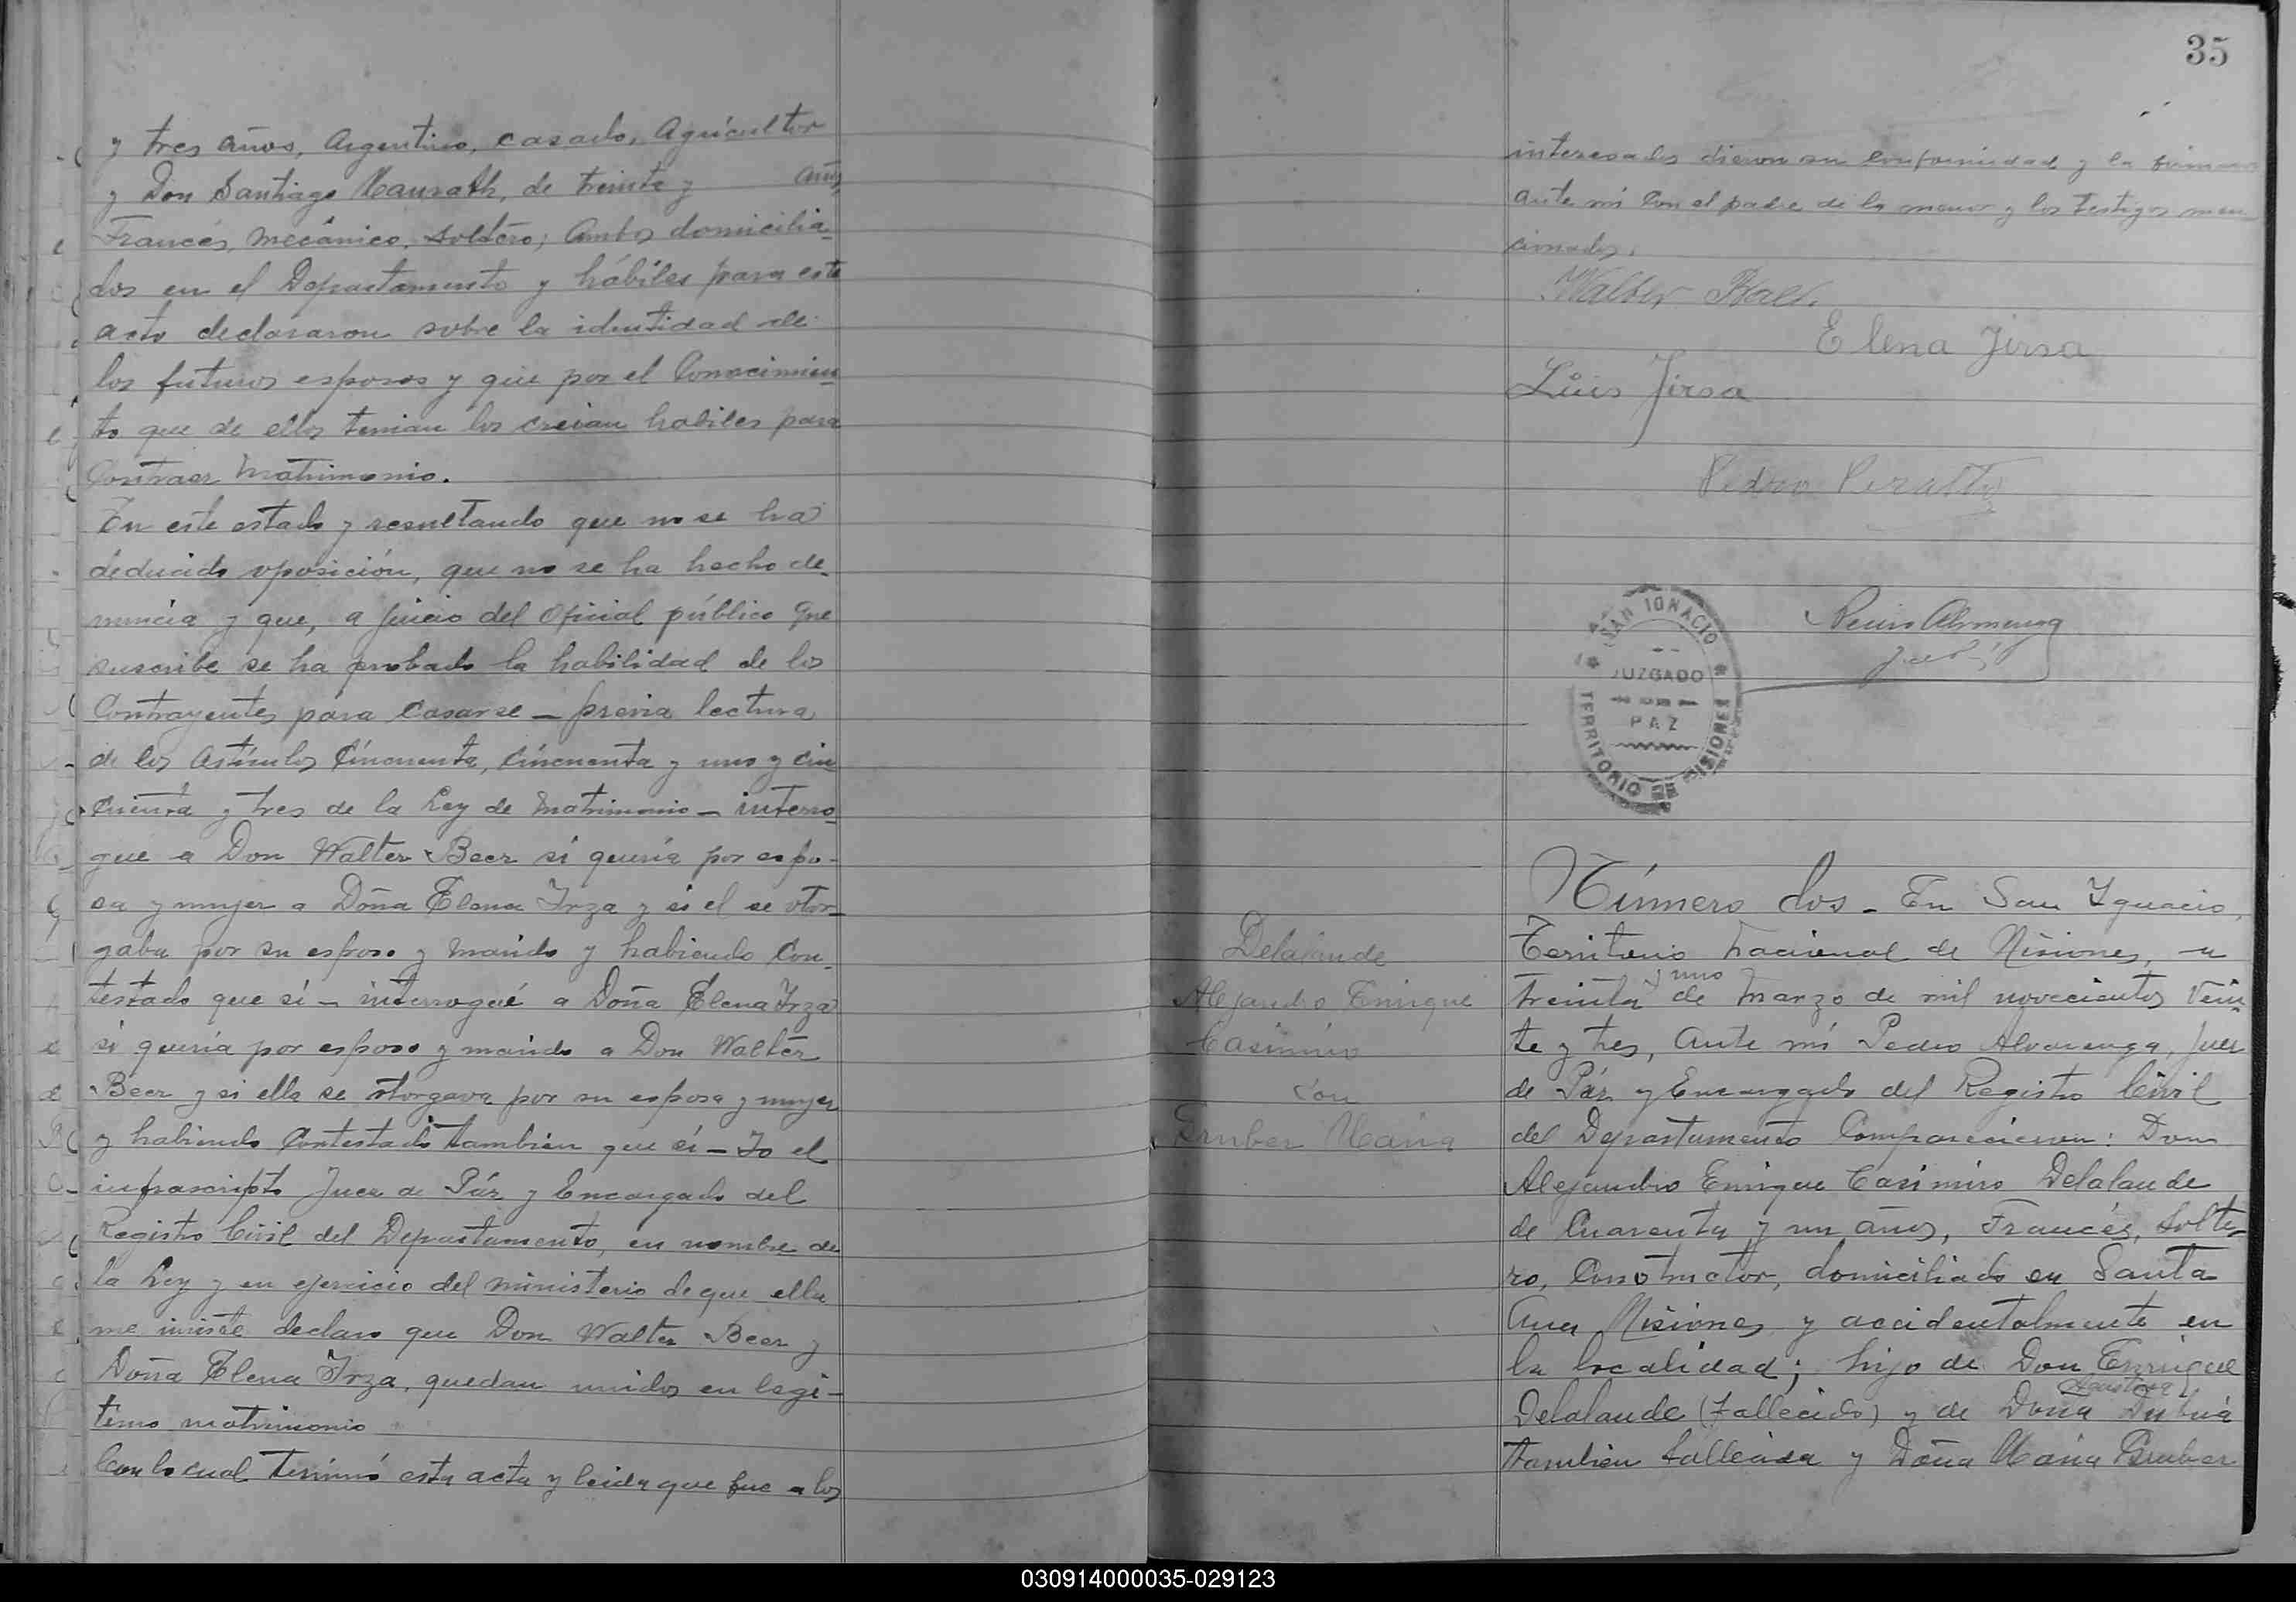 y tres años, Argentino, casado, Agricultor
y Don Santiago Maurath, de treinta y años
Francés, mecánico, soltero; Ambos domicilia-
dos en el Departamento y hábiles para este
acto declararon sobre la identidad de
los futuros esposos y que por el Conocimien-
to que de ellos tenian los creian habiles para
Contraer Matrimonio.
En este estado y resultando que no se ha
deducido oposición, que no se ha hecho de-
nuncia y que, a juicio del Oficial público que
suscribe se ha probado la habilidad de los
Contrayentes para Casarse — previa lectura
de los Artículos Cincuenta, Cincuenta y uno y cin
cuenta y tres de la Ley de Matrimonio — interro-
gue a Don Walter Beer si quería por espo-
sa y mujer a Doña Elena Irza y si el se otor-
gaba por su esposo y marido y habiendo Con-
testado que si — interrogué a Doña Elena Irza
si quería por esposo y marido a Don Walter
Beer y si ella se otorgava por su esposa y mujer
y habiendo Contestado tambien que sí — Yo el
infrascripto Juez de Páz y Encargado del
Registro Civil del Departamento, en nombre de
la Ley y en ejercicio del ministerio de que ella
me inviste declaro que Don Walter Beer y
Doña Elena Irza, quedan unidos en legi-
timo matrimonio
Con lo cual terminó esta acta y leida que fue a los
35
interesados dieron su conformidad y la firmaron
ante mi Con el padre de la menor y los testigos men
cionados.
Walter Beer.
Elena Jirsa
Luis Jirsa
Pedro Peralta
SAN IGNACIO
JUZGADO
DE
PAZ
TERRITORIO DE MISIONES
Número dos - En San Ignacio,
Territorio Nacional de Misiones, a
y uno
treinta de Marzo de mil novecientos Vein-
te y tres, Ante mí Pedro Alvarenga, Juez
de Páz y Encargado del Registro Civil
del Departamento Comparecieron: Don
Alejandro Enrique Casimiro Delalande
de Cuarenta y un años, Francés, Solte-
ro, Constructor, domiciliado en Santa
Ana Misiones y accidentalmente en
la localidad; hijo de Don Enrique
Agustina
Delalande (Fallecido) y de Doña
tambien fallecida y Doña Maria Gruber
Delalande
Alejandro Enrique
Casimiro
con
Gruber Maria
030914000035-029123